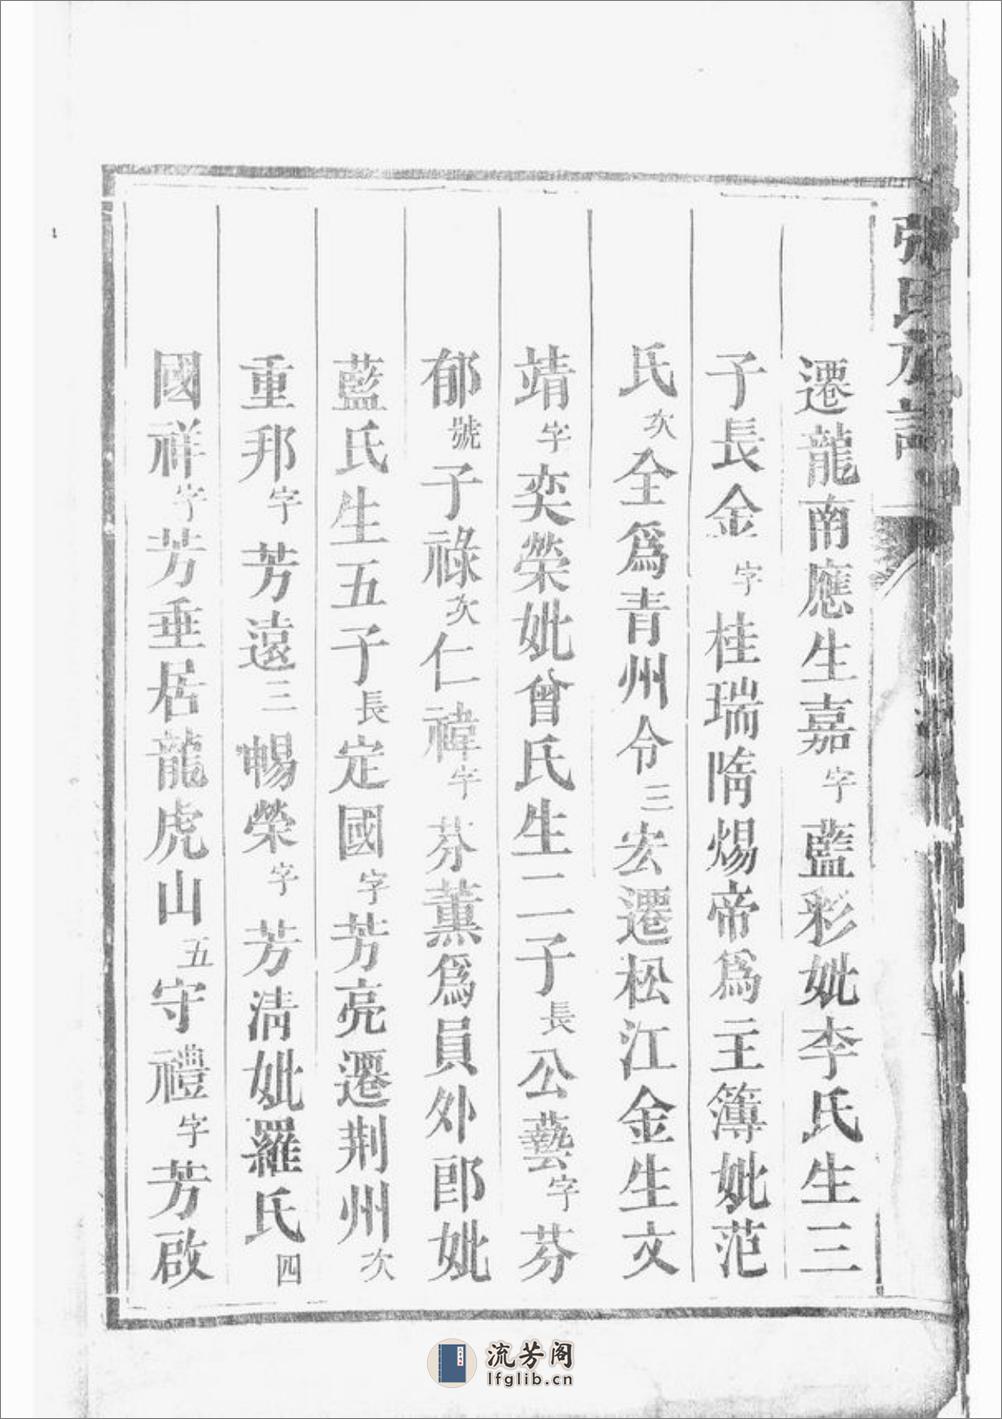 張氏族譜
遷龍南應生嘉字藍彩妣李氏生三
子長金字桂瑞隋煬帝為主簿妣范
氏次全為青州令三宏遷松江金生文
靖字奕榮妣曾氏生二子長公藝字芬
郁號子祿次仁禕字芬薰為員外郎妣
藍氏生五子長定國字芳亮遷荆州次
重邦字芳遠三暢榮字芳清妣羅氏四
國祥字芳垂居龍虎山五守禮字芳啟
流芳阁
lfglib.cn